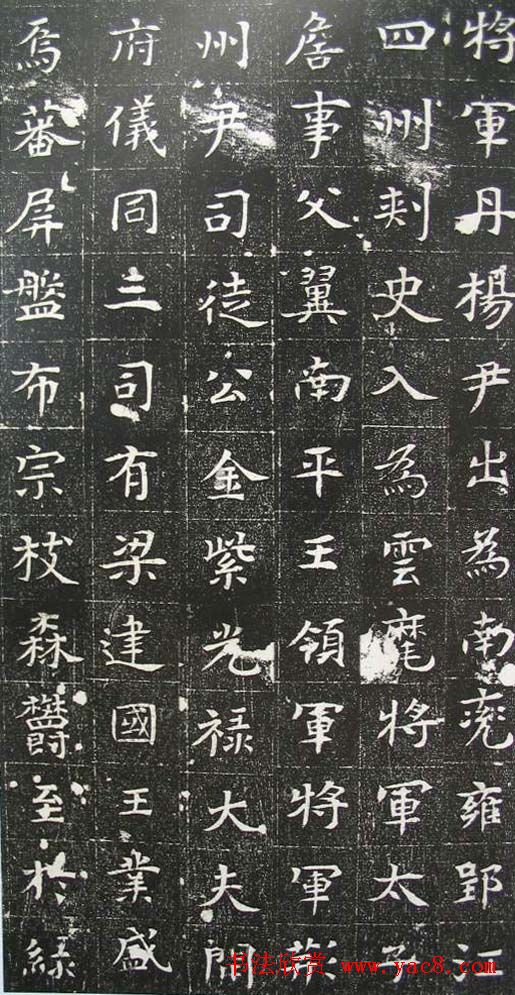 將軍丹楊尹出為南兖雍郢江
四州刾史入為雲麾將軍太子
詹事父翼南平王領軍將軍荊
州尹司徒公金紫光禄大夫開
府儀同三司有梁建國王業盛
焉蕃屏盤布宗枝森欝至扵緑
书法欣赏 www.yac8.com